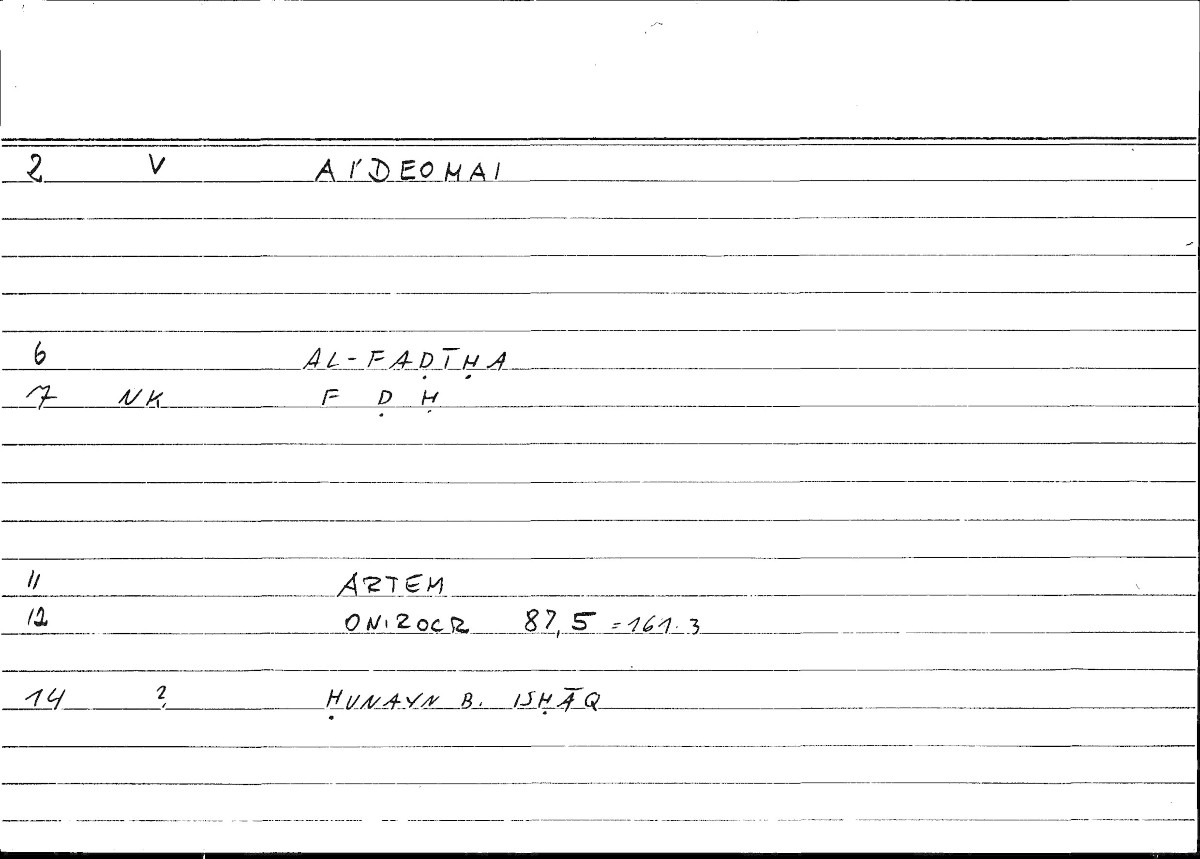 2 V AÍDEOMAI
6 AL-FAḌĪḤA
7 NK F Ḍ Ḥ
11 ARTEM
12 ONIROCR 87,5 =161.3
14 ? ḤUNAYN B. ISḤĀQ